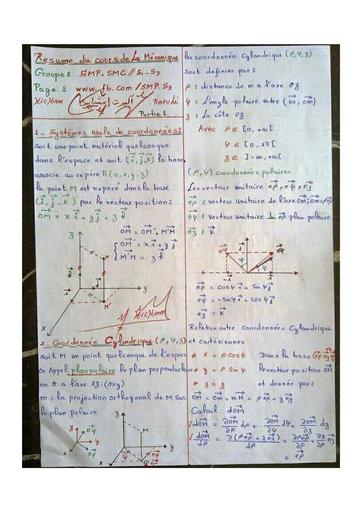 Resume du cours de la Mécanique
Groupe : SMP. SMC // S1 - S3
Page : www.fb.com/SMP.S3
Hicham
Partie 1
1 - Systèmes usile de coordonnées :
Soit un point matériel quelconque
dans l'espace et soit (i, j, k) la base
associe au repère R(o, x, y, z)
la point M est reperé dans la base
(i, j, k) par le vecteur position :
OM = x i + y j + z k
OM = Om + mM
Om = x i + y j
mM = z k
Hicham
2 - Coordonnée Cylindrique (ρ, φ, z)
Soit M un point quelconque de l'espace
On Appel plan polaire le plan perpendiculaire
en O a l'axe oz : (oxy)
m : la projection orthogonal de M sur
le plan polaire
Les Coordonnée Cylindrique (ρ, φ, z)
sont definies par :
ρ : distance de m a l'axe oz
φ : L'angle polaire entre (ox, om)
z : La côte oz
Avec ρ ∈ [0, +∞[
φ ∈ [0, 2π[
z ∈ ]-∞, +∞[
(ρ, φ) coordonnées polaires
Les vecteur unitaire eρ, eφ, ez
eρ : vecteur unitaire de l'axe om
eφ : vecteur unitaire ⊥ eρ plan polaire
ez : k
eρ = cos φ i + sin φ j
eφ = -sin φ i + cos φ j
ez = k
Relation entre Coordonnées Cylindrique
et cartésiennes
x = ρ cos φ
y = ρ sin φ
z = z
Dans la base (eρ, eφ, ez)
le vecteur position OM
est donnée par :
OM = Om + mM = ρ eρ + z ez
Calcul dOM